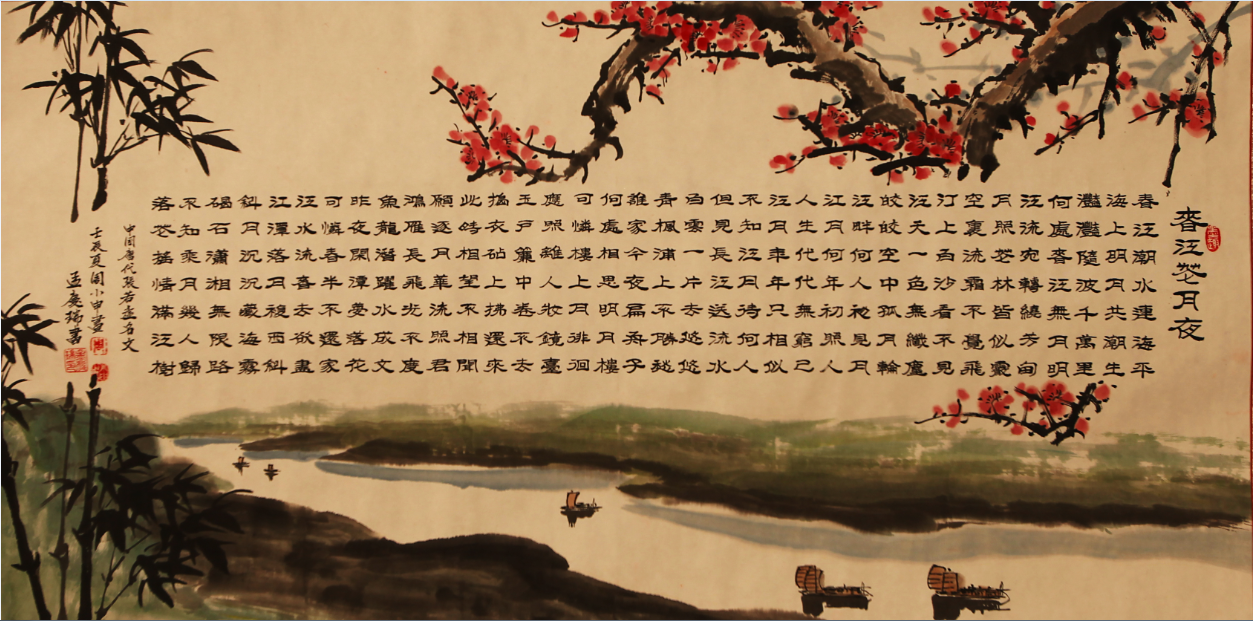 春江花月夜
春江潮水連海平
海上明月共潮生
灩灩隨波千萬里
何處春江無月明
江流宛轉繞芳甸
月照花林皆似霰
空裏流霜不覺飛
汀上白沙看不見
江天一色無纖塵
皎皎空中孤月輪
江畔何人初見月
江月何年初照人
人生代代無窮已
江月年年只相似
不知江月待何人
但見長江送流水
白雲一片去悠悠
青楓浦上不勝愁
誰家今夜扁舟子
何處相思明月樓
可憐樓上月徘徊
應照離人妝鏡臺
玉戶簾中卷不去
擣衣砧上拂還來
此時相望不相聞
願逐月華流照君
鴻雁長飛光不度
魚龍潛躍水成文
昨夜閑潭夢落花
可憐春半不還家
江水流春去欲盡
江潭落月復西斜
斜月沉沉藏海霧
碣石瀟湘無限路
不知乘月幾人歸
落花搖情滿江樹
中國唐代張若虛名文
壬辰夏